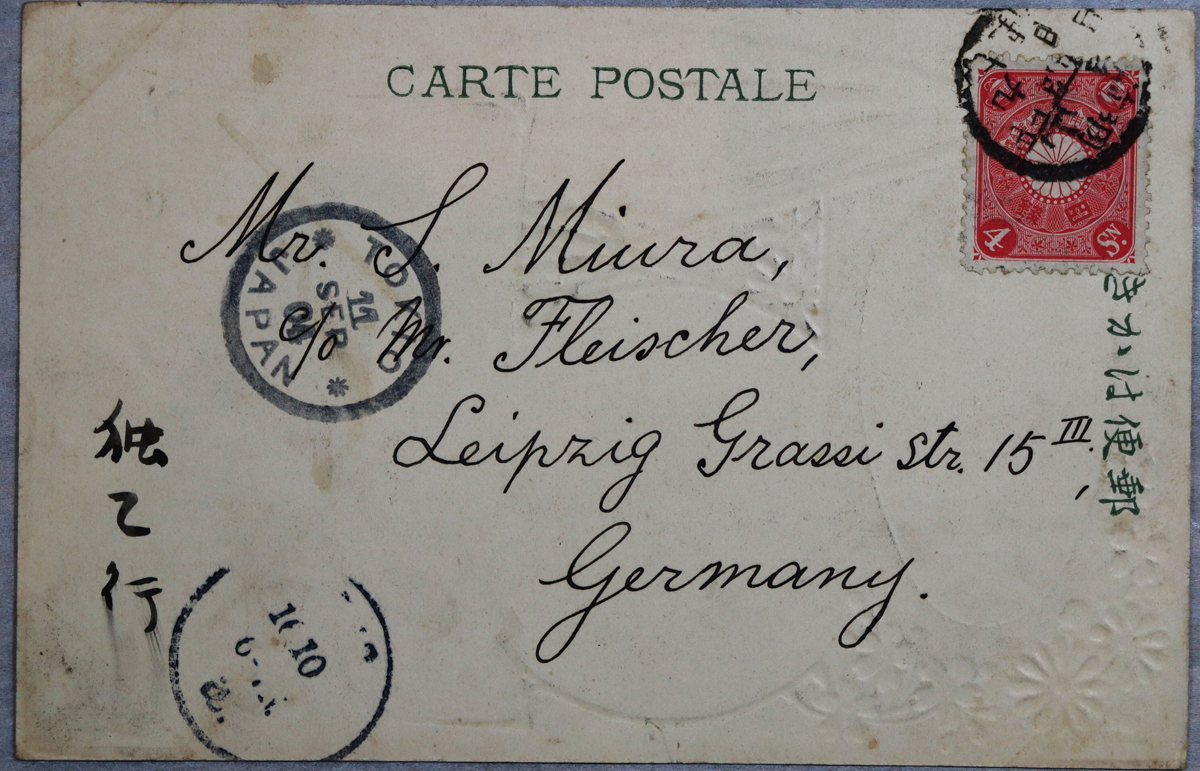 CARTE POSTALE
Mr. S. Miura,
c/o Mr. Fleischer,
Leipzig Grassi str. 15 III.,
Germany.
独乙行
郵便はかき
4 Sn.
TOKIO
11
SEP
JAPAN
10